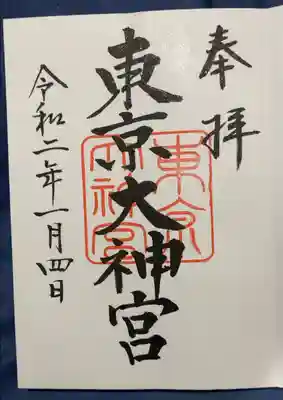 奉拝
東京大神宮
令和二年一月四日
東京大神宮